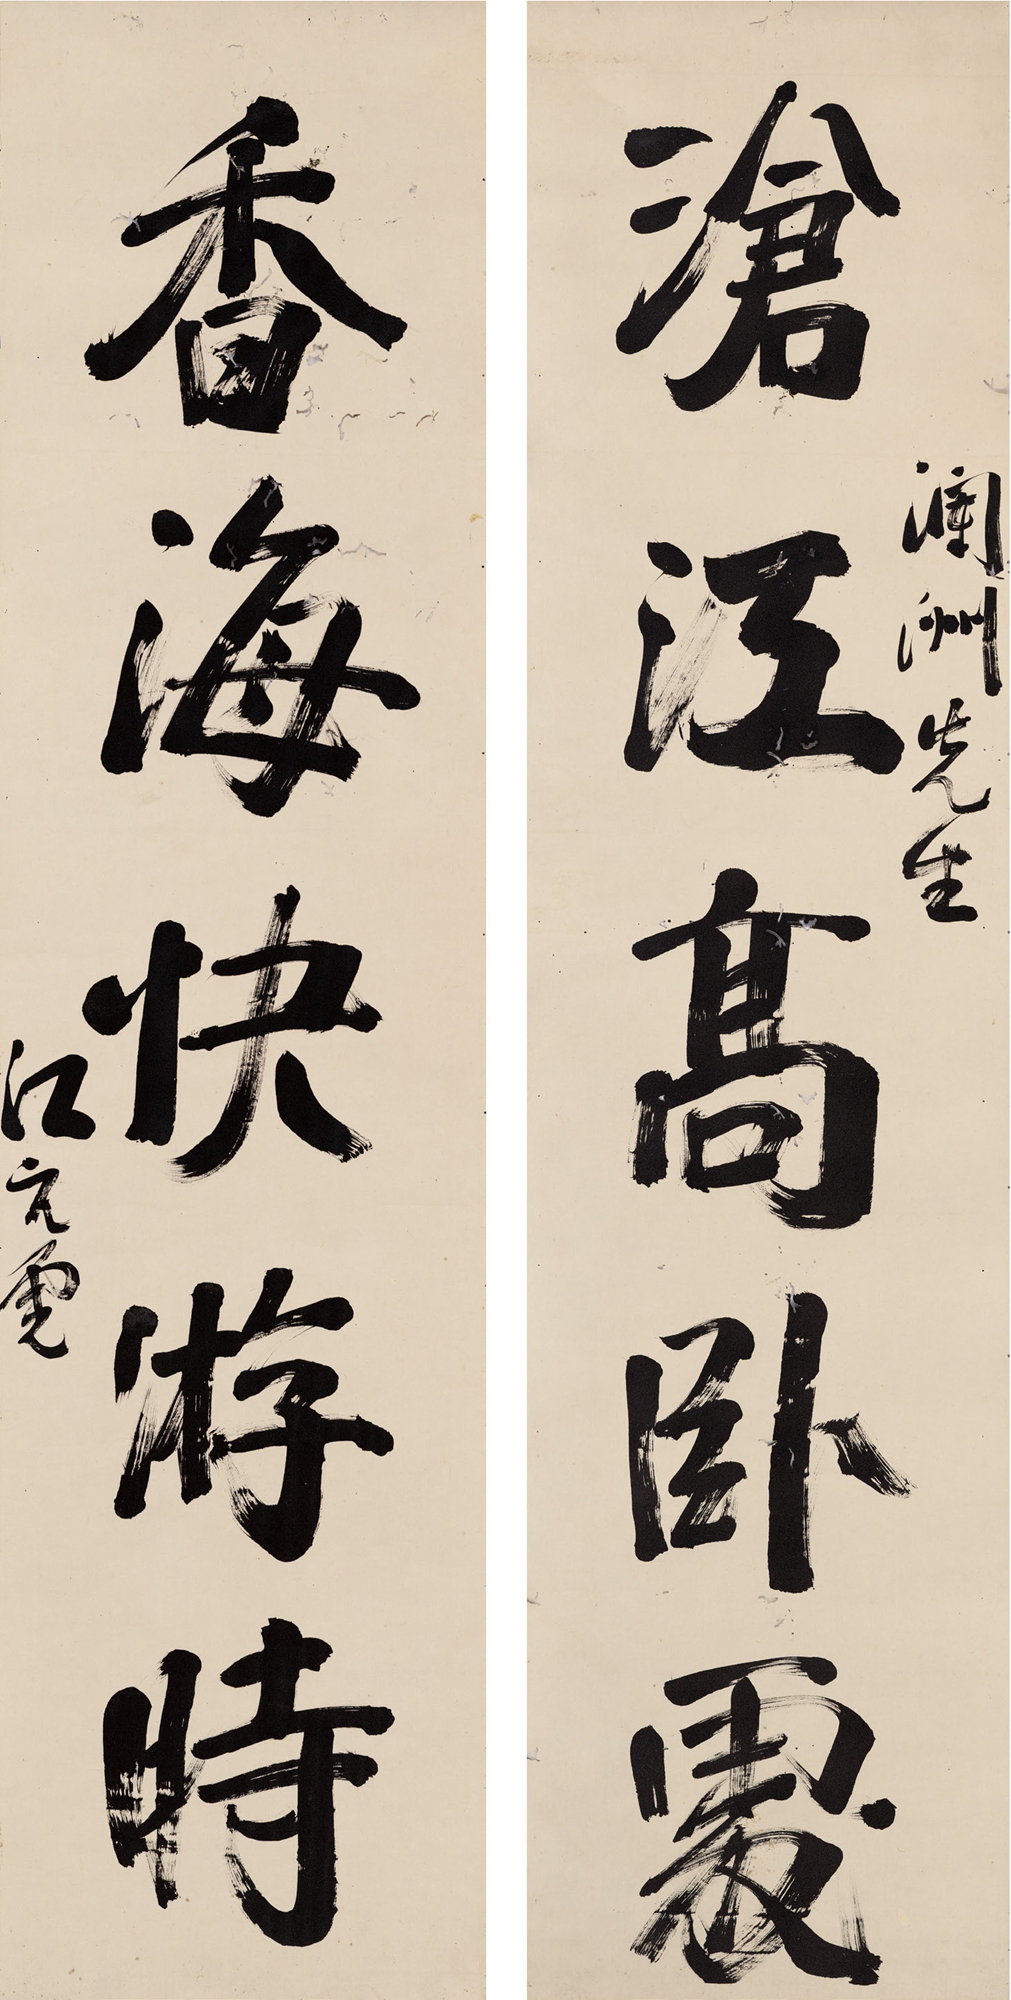 瀾洲先生
滄江高卧處
香海快游時
江亢虎